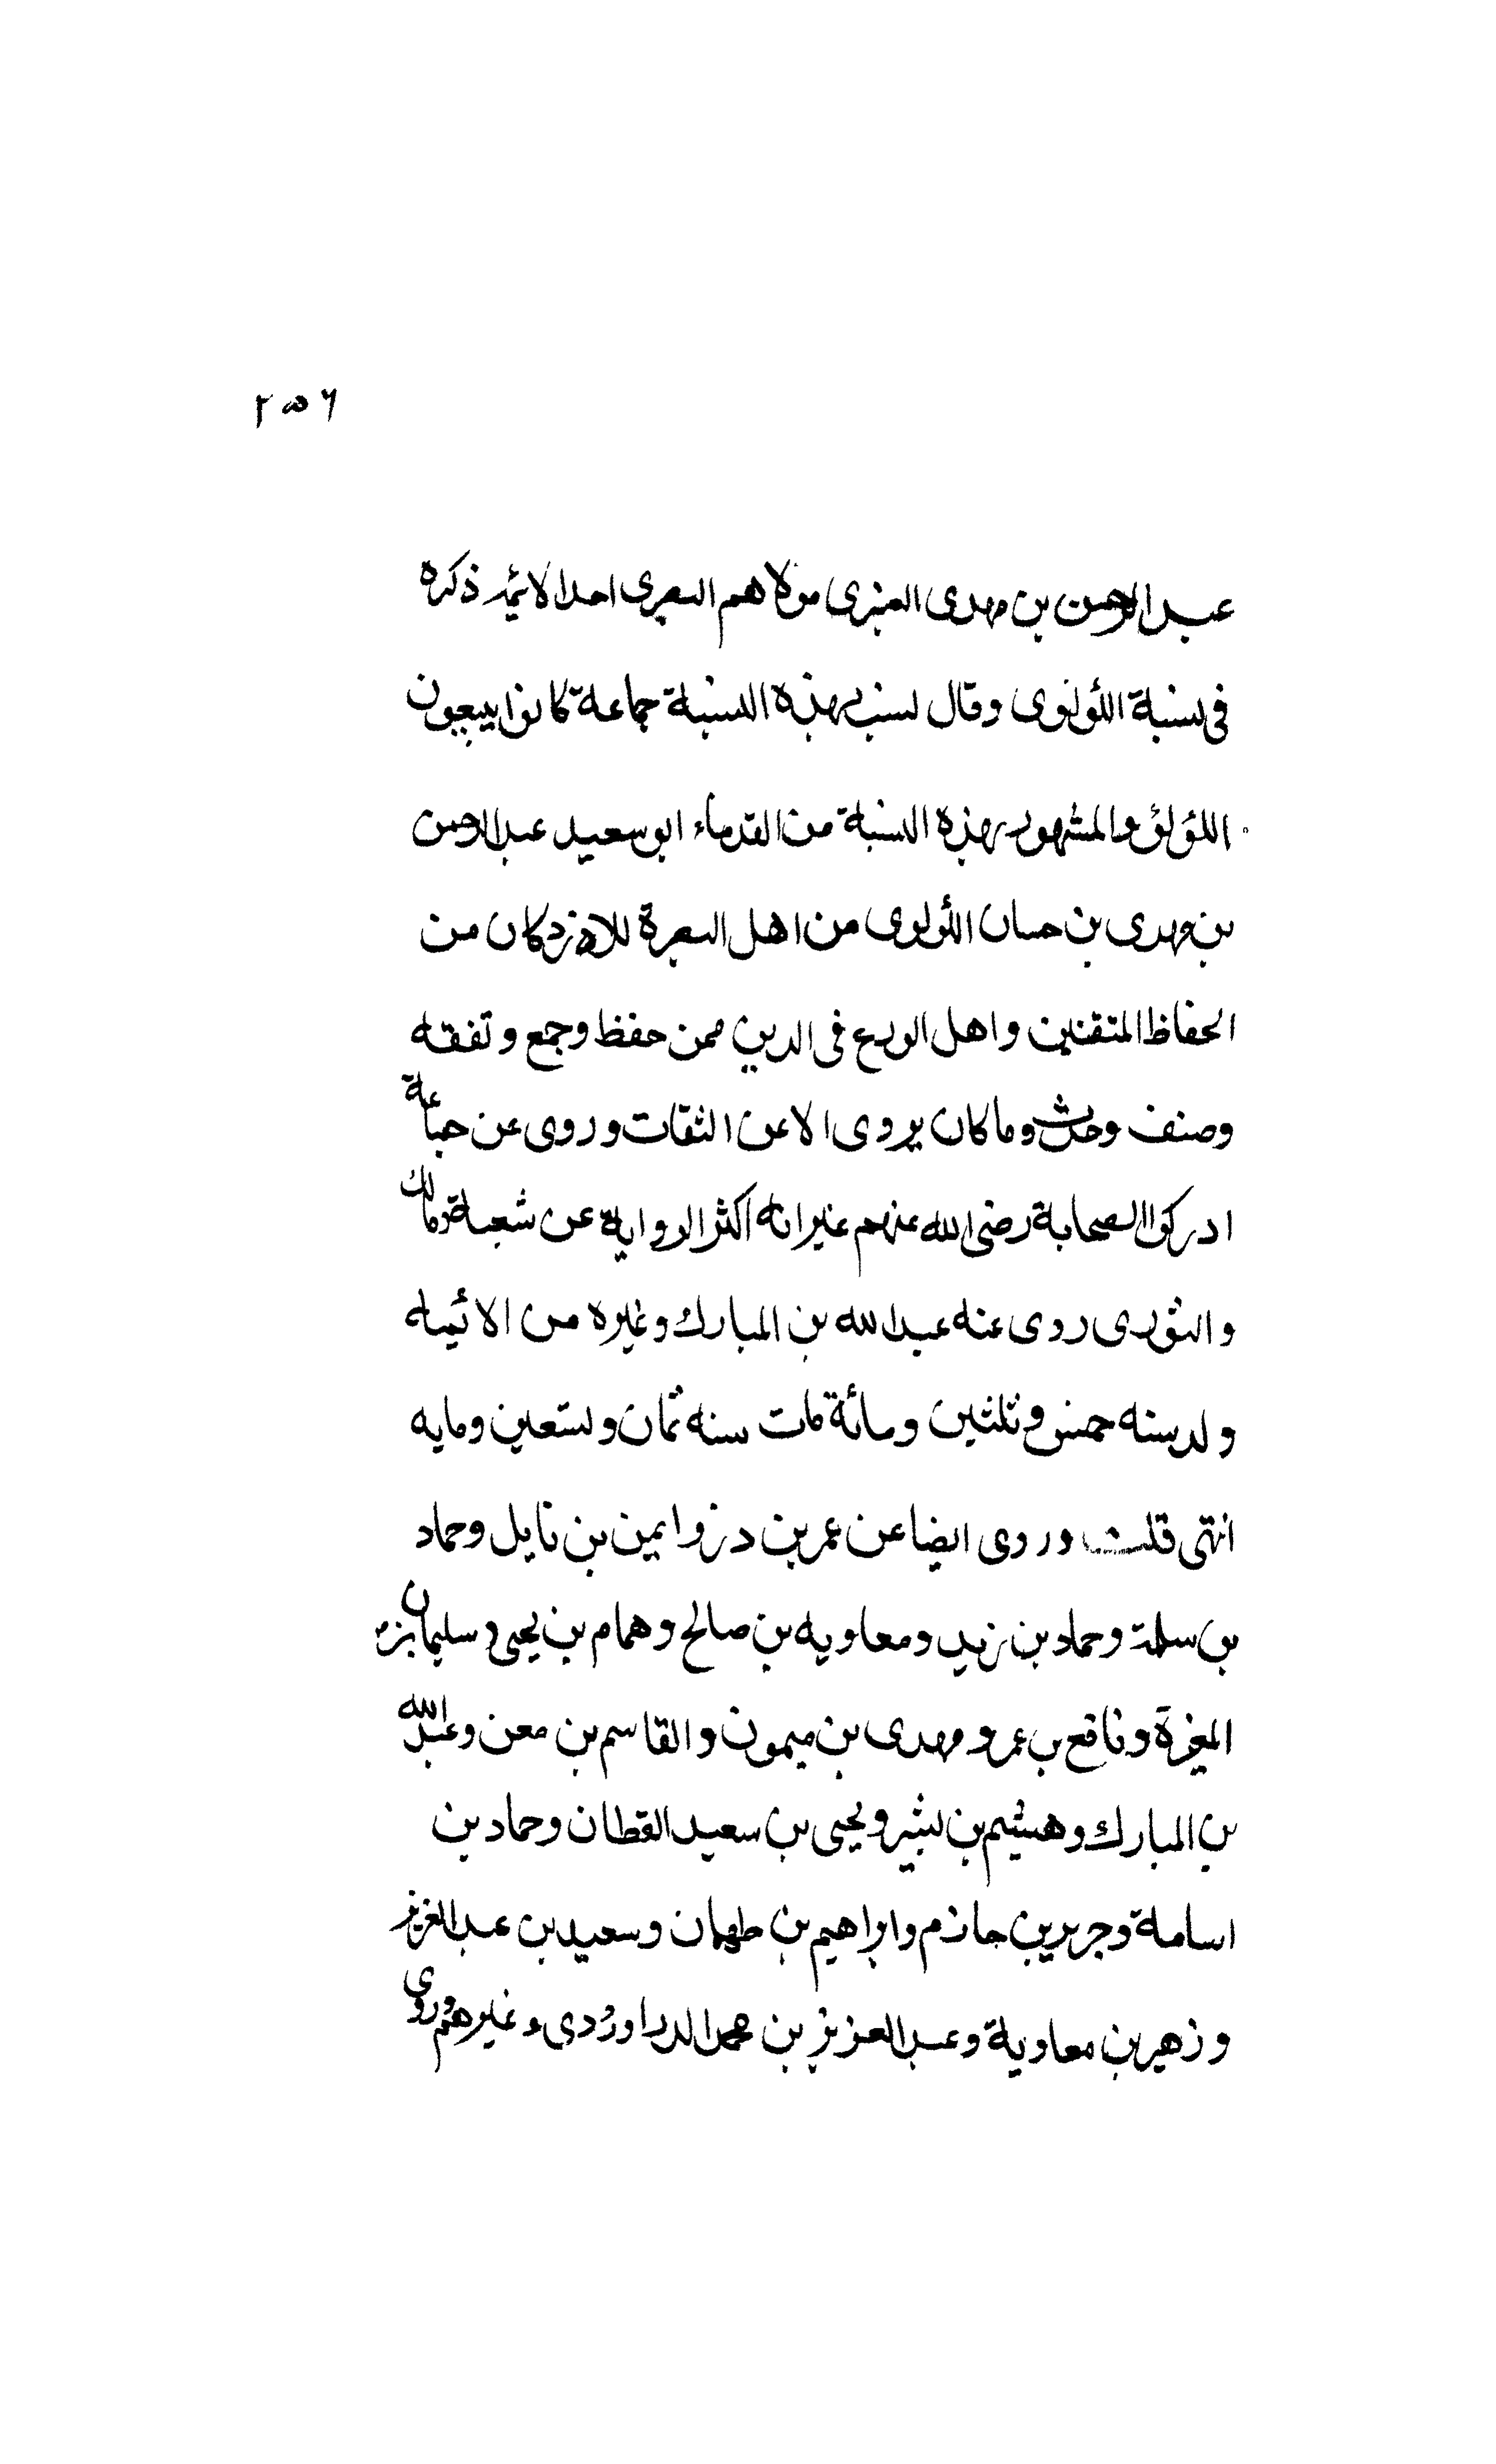 ٢٥٦
عبد الرحمن بن مهدى العنبرى مولاهم البصرى احد الائمة ذكره
فى نسبة اللؤلوى وقال نسب بهذه النسبة جماعة كانوا يبيعون
اللؤلؤ والمشهور بهذه النسبة من القدماء ابو سعيد عبد الرحمن
بن مهدى بن حسان اللؤلوى من اهل البصرة للازد كان من
الحفاظ المتقنين واهل الورع فى الدين ممن حفظ وجمع وتفقه
وصنف وحدث وما كان يروى الا عن الثقات وروى عن جماعة
ادركوا الصحابة رضى الله عنهم غير انه اكثر الرواية عن شعبة ومالك
والثورى روى عنه عبد الله بن المبارك وغيره من الائمه
ولد سنه خمس وثلثين ومائة مات سنه ثمان وتسعين ومايه
انتهى قلت وروى ايضا عن عمر بن در وايمن بن نايل وحماد
بن سلمة وحماد بن زيد ومعاويه بن صالح وهمام بن يحيى وسليمان بن
المغيرة ونافع بن عمر ومهدى بن ميمون والقاسم بن معن وعبد الله
بن المبارك وهشيم بن بشير ويحيى بن سعيد القطان وحماد بن
اسامة وجرير بن حازم وابراهيم بن طهمان وسعيد بن عبد العزيز
وزهير بن معاوية وعبد العزيز بن محمد الدراوردى وغيرهم وروى